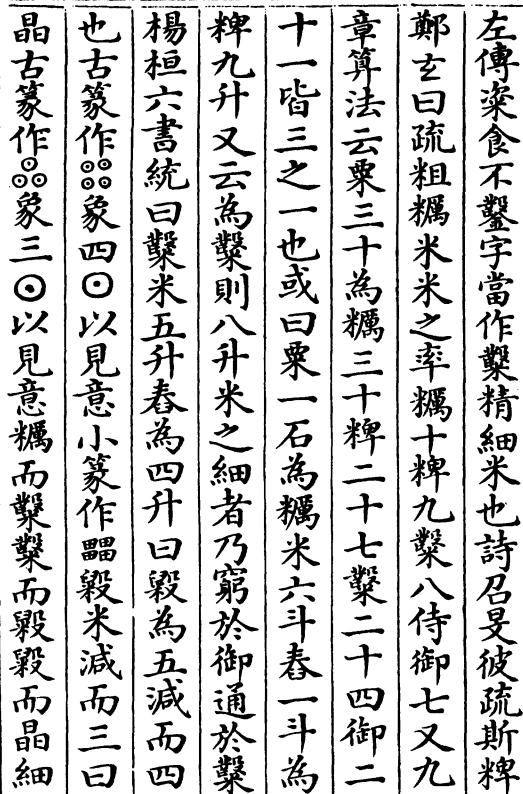 左傳粢食不鑿字當作糳精細米也詩召旻彼疏斯粺
鄭玄曰疏粗糲米米之率糲十粺九糳八侍御七又九
章算法云粟三十為糲三十粺二十七糳二十四御二
十一皆三之一也或曰粟一石為糲米六斗舂一斗為
粺九升又云為糳則八升米之細者乃窮於御通於糳
楊桓六書統曰糳米五升舂為四升曰毇為五減而四
也古篆作象四⊙以見意小篆作毇米減而三曰
晶古篆作象三⊙以見意糲而糳糳而毇毇而晶細